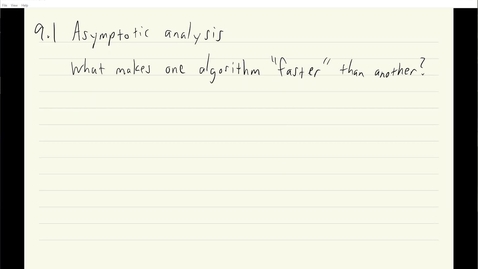 9.1 Asymptotic analysis
What makes one algorithm "faster" than another?